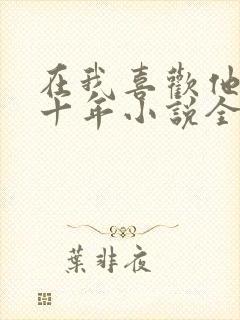 在我喜歡他
十年小說全
葉非夜